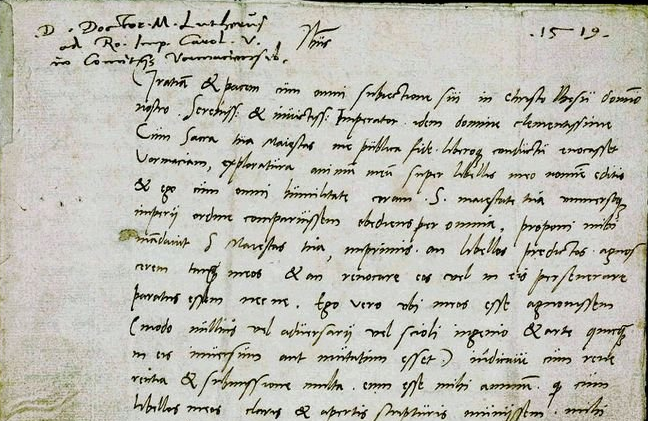 D. Doctor. M. Lutherus
ad Ro. Imp. Carol. V.
in Comitijs Vormaciensib.
Jhūs
·1519·
Gratiam & pacem cum omni subiectione sui in Christo Ihesu domino
nostro. Sereniss: & inuictiss: Imperator. idem domine clementissime
Cum Sacra tua Maiestas me publica fide. liberoq conductu euocasset
Vormaciam, exploratura animū meū super libellis meo nomine editis
& ego cum omni humilitate coram. S. maiestate tua uniuersoq
imperij ordine comparuissem obediens per omnia, proponi mihi
mandauit S Maiestas tua, imprimis. an libellos predictos agnos
cerem tanq̄ meos & an reuocare eos uel in eis perseuerare
paratus essem nec ne. Ego uero ubi meos esse agnouissem
(modo nullius uel aduersarij uel scioli ingenio & arte quicq̄
in eis inuersum aut mutatum esset) indicaui cum reue
rentia & submissione multa. eum esse mihi animū. q cum
libellos meos claris & apertis scripturis muniissem. mihi